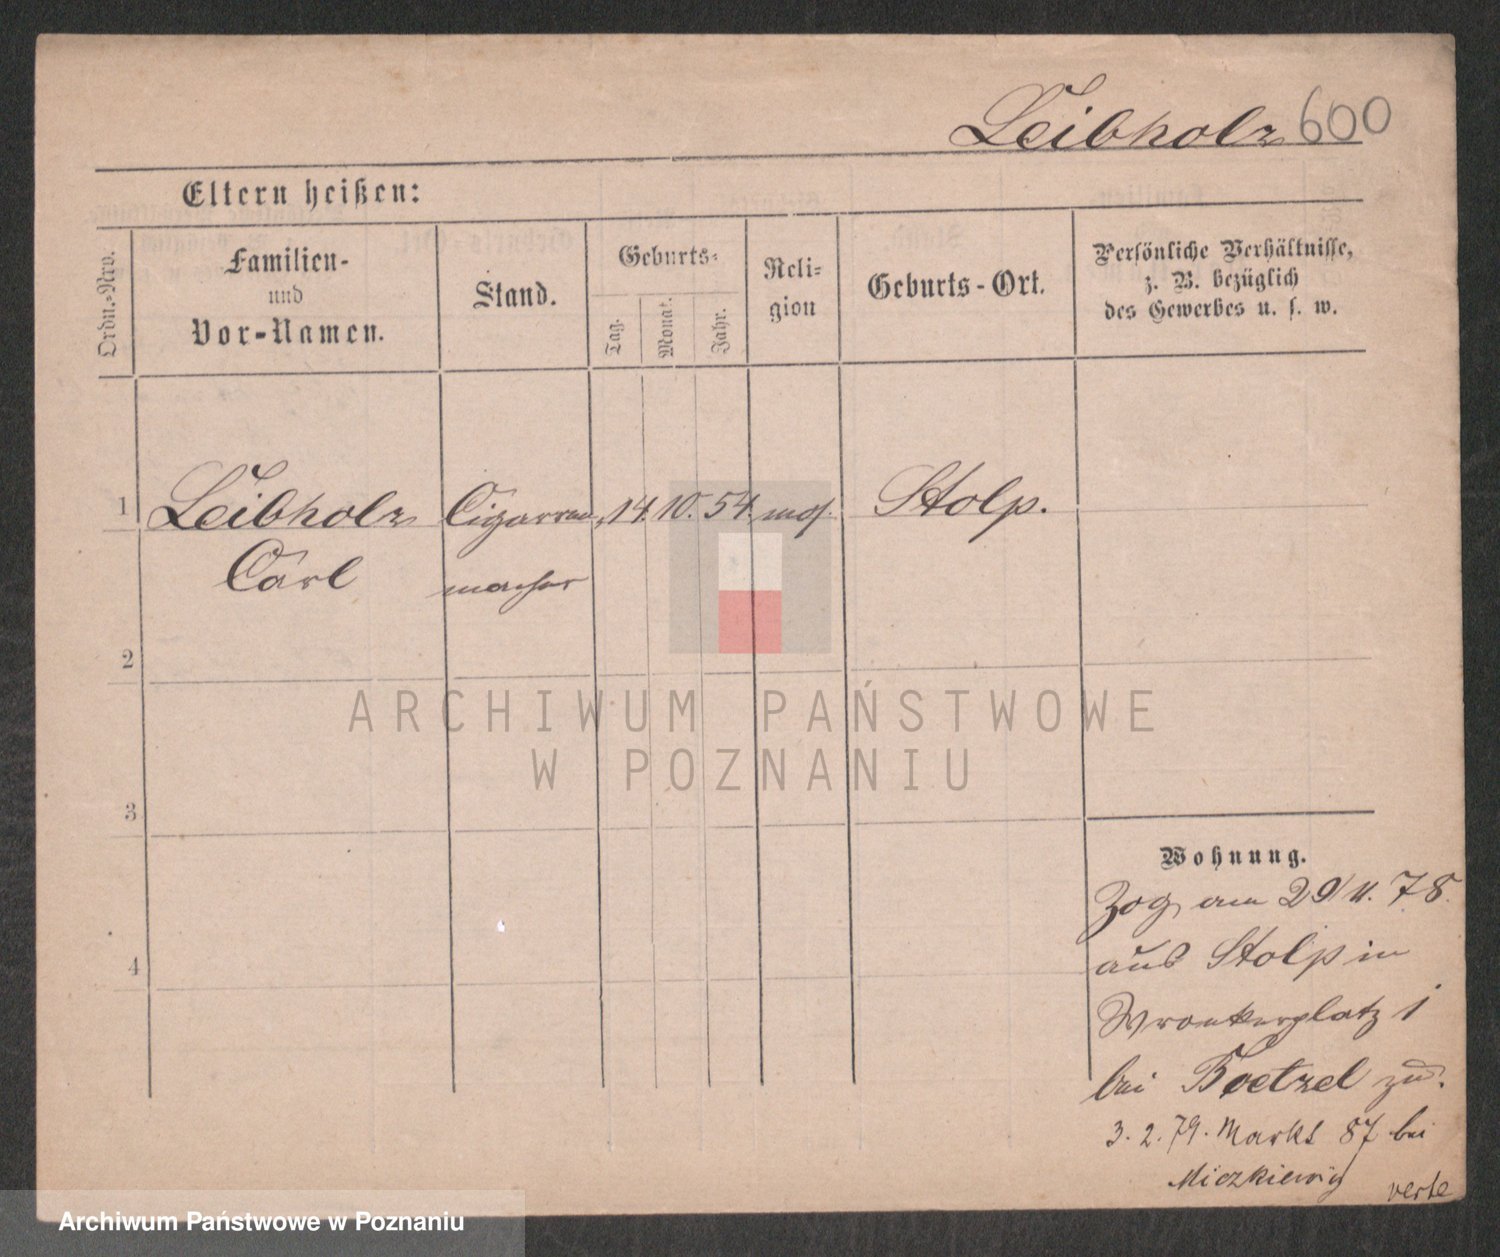 Leibholz 600
Eltern heißen:
Ordn.-Nro.
Familien-
und
Vor-Namen.
Stand.
Geburts-
Tag.
Monat.
Jahr.
Reli-
gion
Geburts-Ort.
Persönliche Verhältnisse,
z. B. bezüglich
des Gewerbes u. s. w.
1 Leibholz Cigarren 14. 10. 54. mos. Stolp.
Carl macher
2
3
4
Wohnung.
Zog am 29/11. 78.
aus Stolp in
Wronkerplatz 1
bei Boetzel zu.
3. 2. 79. Markt 87 bei
verte
ARCHIWUM PAŃSTWOWE
W POZNANIU
Archiwum Państwowe w Poznaniu